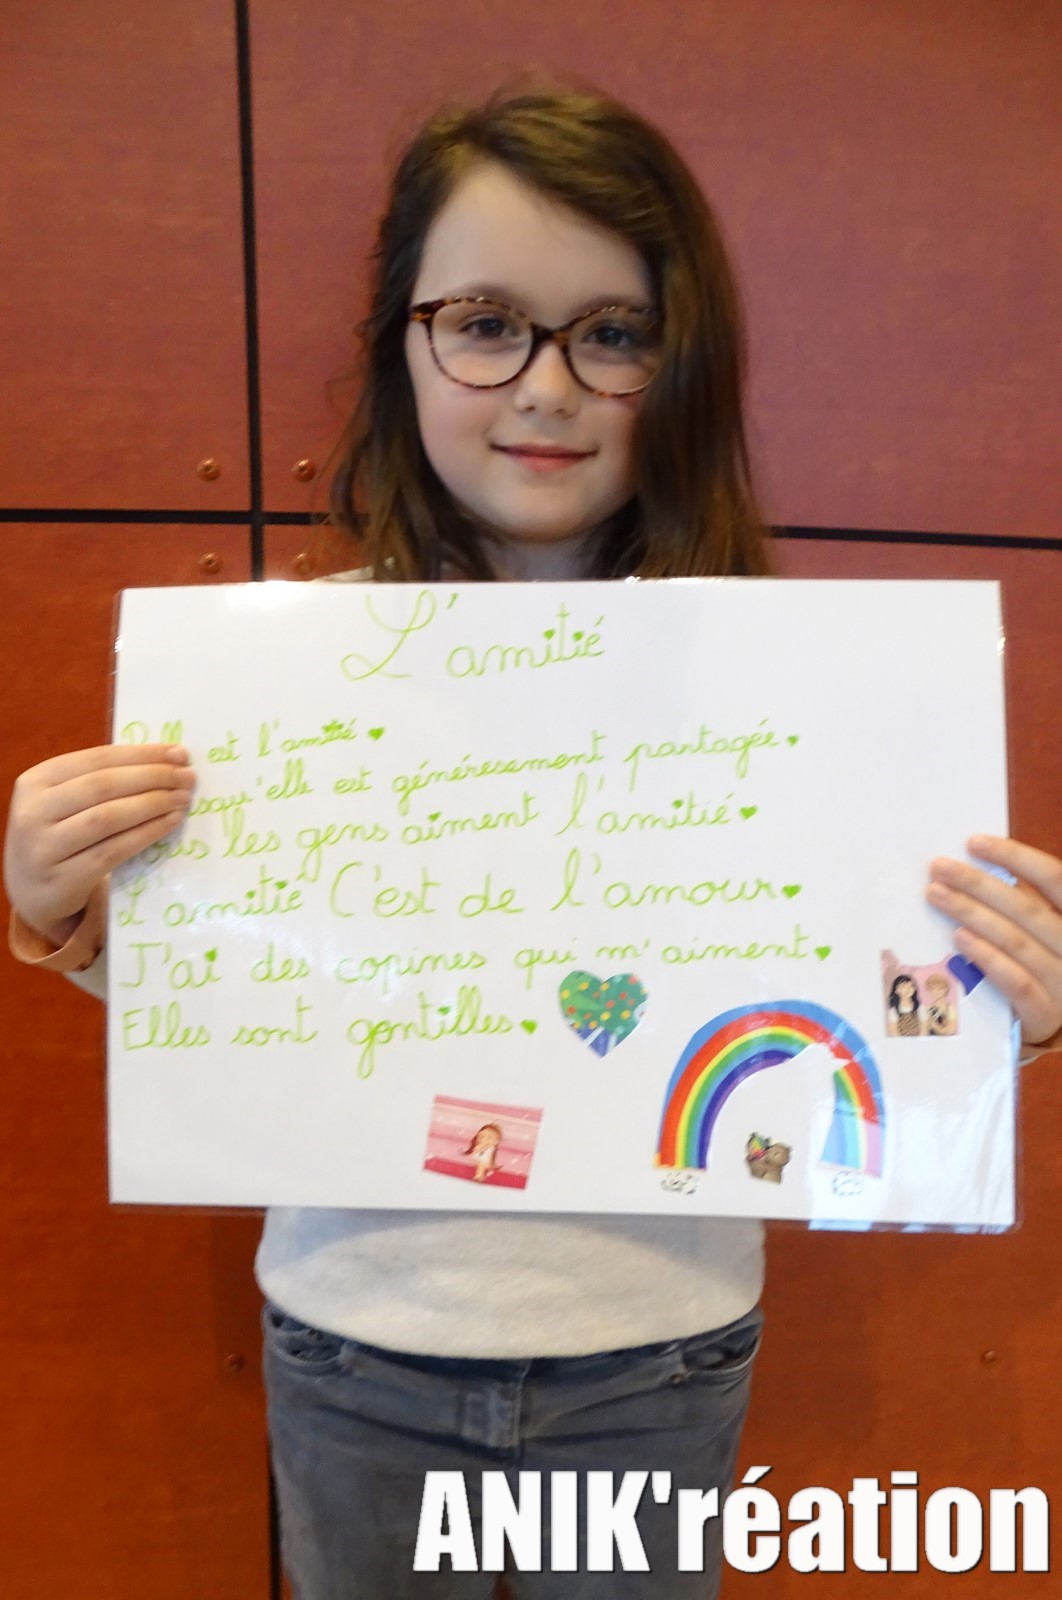 L'amitié
est l'amitié
est généresement partagée.
les gens aiment l'amitié
L'amitié C'est de l'amour
J'ai des copines qui m'aiment
Elles sont gentilles
ANIK'réation